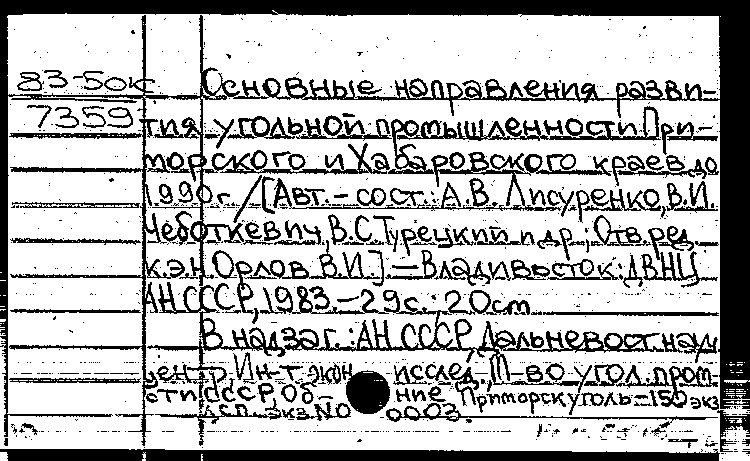 83-5ок Основные направления разви-
7359 тия угольной промышленности При-
морского и Хабаровского краев до
1990г. /[Авт.-сост.: А.В. Лисуренко, В.И.
Чеботкевич, В.С. Турецкий и др.; Отв. ред.
к.э.н. Орлов В.И.] — Владивосток: ДВНЦ
АН СССР, 1983.-29с.; 20см
В надзаг.: АН СССР, Дальневост. науч.
центр, Ин-т экон. исслед., М-во угол. пром-
сти СССР, Об- ние "Приморскуголь-150экз
экз. №0003.